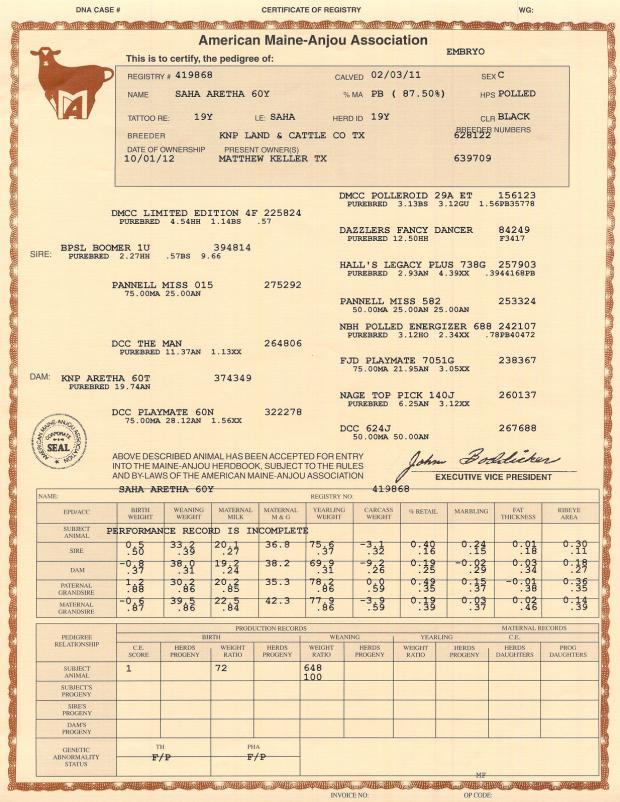 DNA CASE # CERTIFICATE OF REGISTRY WG:
American Maine-Anjou Association
EMBRYO
This is to certify, the pedigree of:
REGISTRY # 419868 CALVED 02/03/11 SEX C
NAME SAHA ARETHA 60Y % MA PB ( 87.50%) HPS POLLED
TATTOO RE: 19Y LE: SAHA HERD ID 19Y CLR BLACK
BREEDER NUMBERS
BREEDER KNP LAND & CATTLE CO TX 628122
DATE OF OWNERSHIP PRESENT OWNER(S)
10/01/12 MATTHEW KELLER TX 639709
MA
DMCC POLLEROID 29A ET 156123
PUREBRED 3.13BS 3.12GU 1.56PB35778
DMCC LIMITED EDITION 4F 225824
PUREBRED 4.54HH 1.14BS .57
DAZZLERS FANCY DANCER 84249
PUREBRED 12.50HH F3417
SIRE: BPSL BOOMER 1U 394814
PUREBRED 2.27HH .57BS 9.66
HALL'S LEGACY PLUS 738G 257903
PUREBRED 2.93AN 4.39XX .3944168PB
PANNELL MISS 015 275292
75.00MA 25.00AN
PANNELL MISS 582 253324
50.00MA 25.00AN 25.00AN
NBH POLLED ENERGIZER 688 242107
PUREBRED 3.12HO 2.34XX .78PB40472
DCC THE MAN 264806
PUREBRED 11.37AN 1.13XX
FJD PLAYMATE 7051G 238367
75.00MA 21.95AN 3.05XX
DAM: KNP ARETHA 60T 374349
PUREBRED 19.74AN
NAGE TOP PICK 140J 260137
PUREBRED 6.25AN 3.12XX
DCC PLAYMATE 60N 322278
75.00MA 28.12AN 1.56XX
DCC 624J 267688
50.00MA 50.00AN
AMERICAN MAINE-ANJOU ASSOCIATION
CORPORATE
SEAL
ABOVE DESCRIBED ANIMAL HAS BEEN ACCEPTED FOR ENTRY
INTO THE MAINE-ANJOU HERDBOOK, SUBJECT TO THE RULES
AND BY-LAWS OF THE AMERICAN MAINE-ANJOU ASSOCIATION
John Boddicker
EXECUTIVE VICE PRESIDENT
SAHA ARETHA 60Y 419868
NAME: REGISTRY NO:
EPD/ACC BIRTH WEIGHT WEANING WEIGHT MATERNAL MILK MATERNAL M & G YEARLING WEIGHT CARCASS WEIGHT % RETAIL MARBLING FAT THICKNESS RIBEYE AREA
SUBJECT ANIMAL PERFORMANCE RECORD IS INCOMPLETE
SIRE 0.5 33.2 20.1 36.8 75.6 -3.1 0.40 0.24 0.01 0.30
.50 .39 .27 .37 .32 .16 .15 .18 .11
DAM -0.8 38.0 19.2 38.2 69.9 -9.2 0.19 -0.02 0.03 0.18
.37 .31 .24 .31 .26 .25 .29 .34 .27
PATERNAL GRANDSIRE 1.2 30.2 20.2 35.3 78.2 0.0 0.49 0.15 -0.01 0.36
.88 .86 .85 .86 .59 .35 .37 .38 .35
MATERNAL GRANDSIRE -0.6 39.5 22.5 42.3 77.9 -3.9 0.19 0.03 0.02 0.14
.87 .86 .84 .86 .59 .39 .37 .46 .39
PEDIGREE RELATIONSHIP PRODUCTION RECORDS MATERNAL RECORDS
BIRTH WEANING YEARLING C.E.
C.E. SCORE HERDS PROGENY WEIGHT RATIO HERDS PROGENY WEIGHT RATIO HERDS PROGENY WEIGHT RATIO HERDS PROGENY HERDS DAUGHTERS PROG DAUGHTERS
SUBJECT ANIMAL 1 72 648
100
SUBJECT'S PROGENY
SIRE'S PROGENY
DAM'S PROGENY
GENETIC ABNORMALITY STATUS TH PHA
F/P F/P
MF
INVOICE NO: OP CODE: